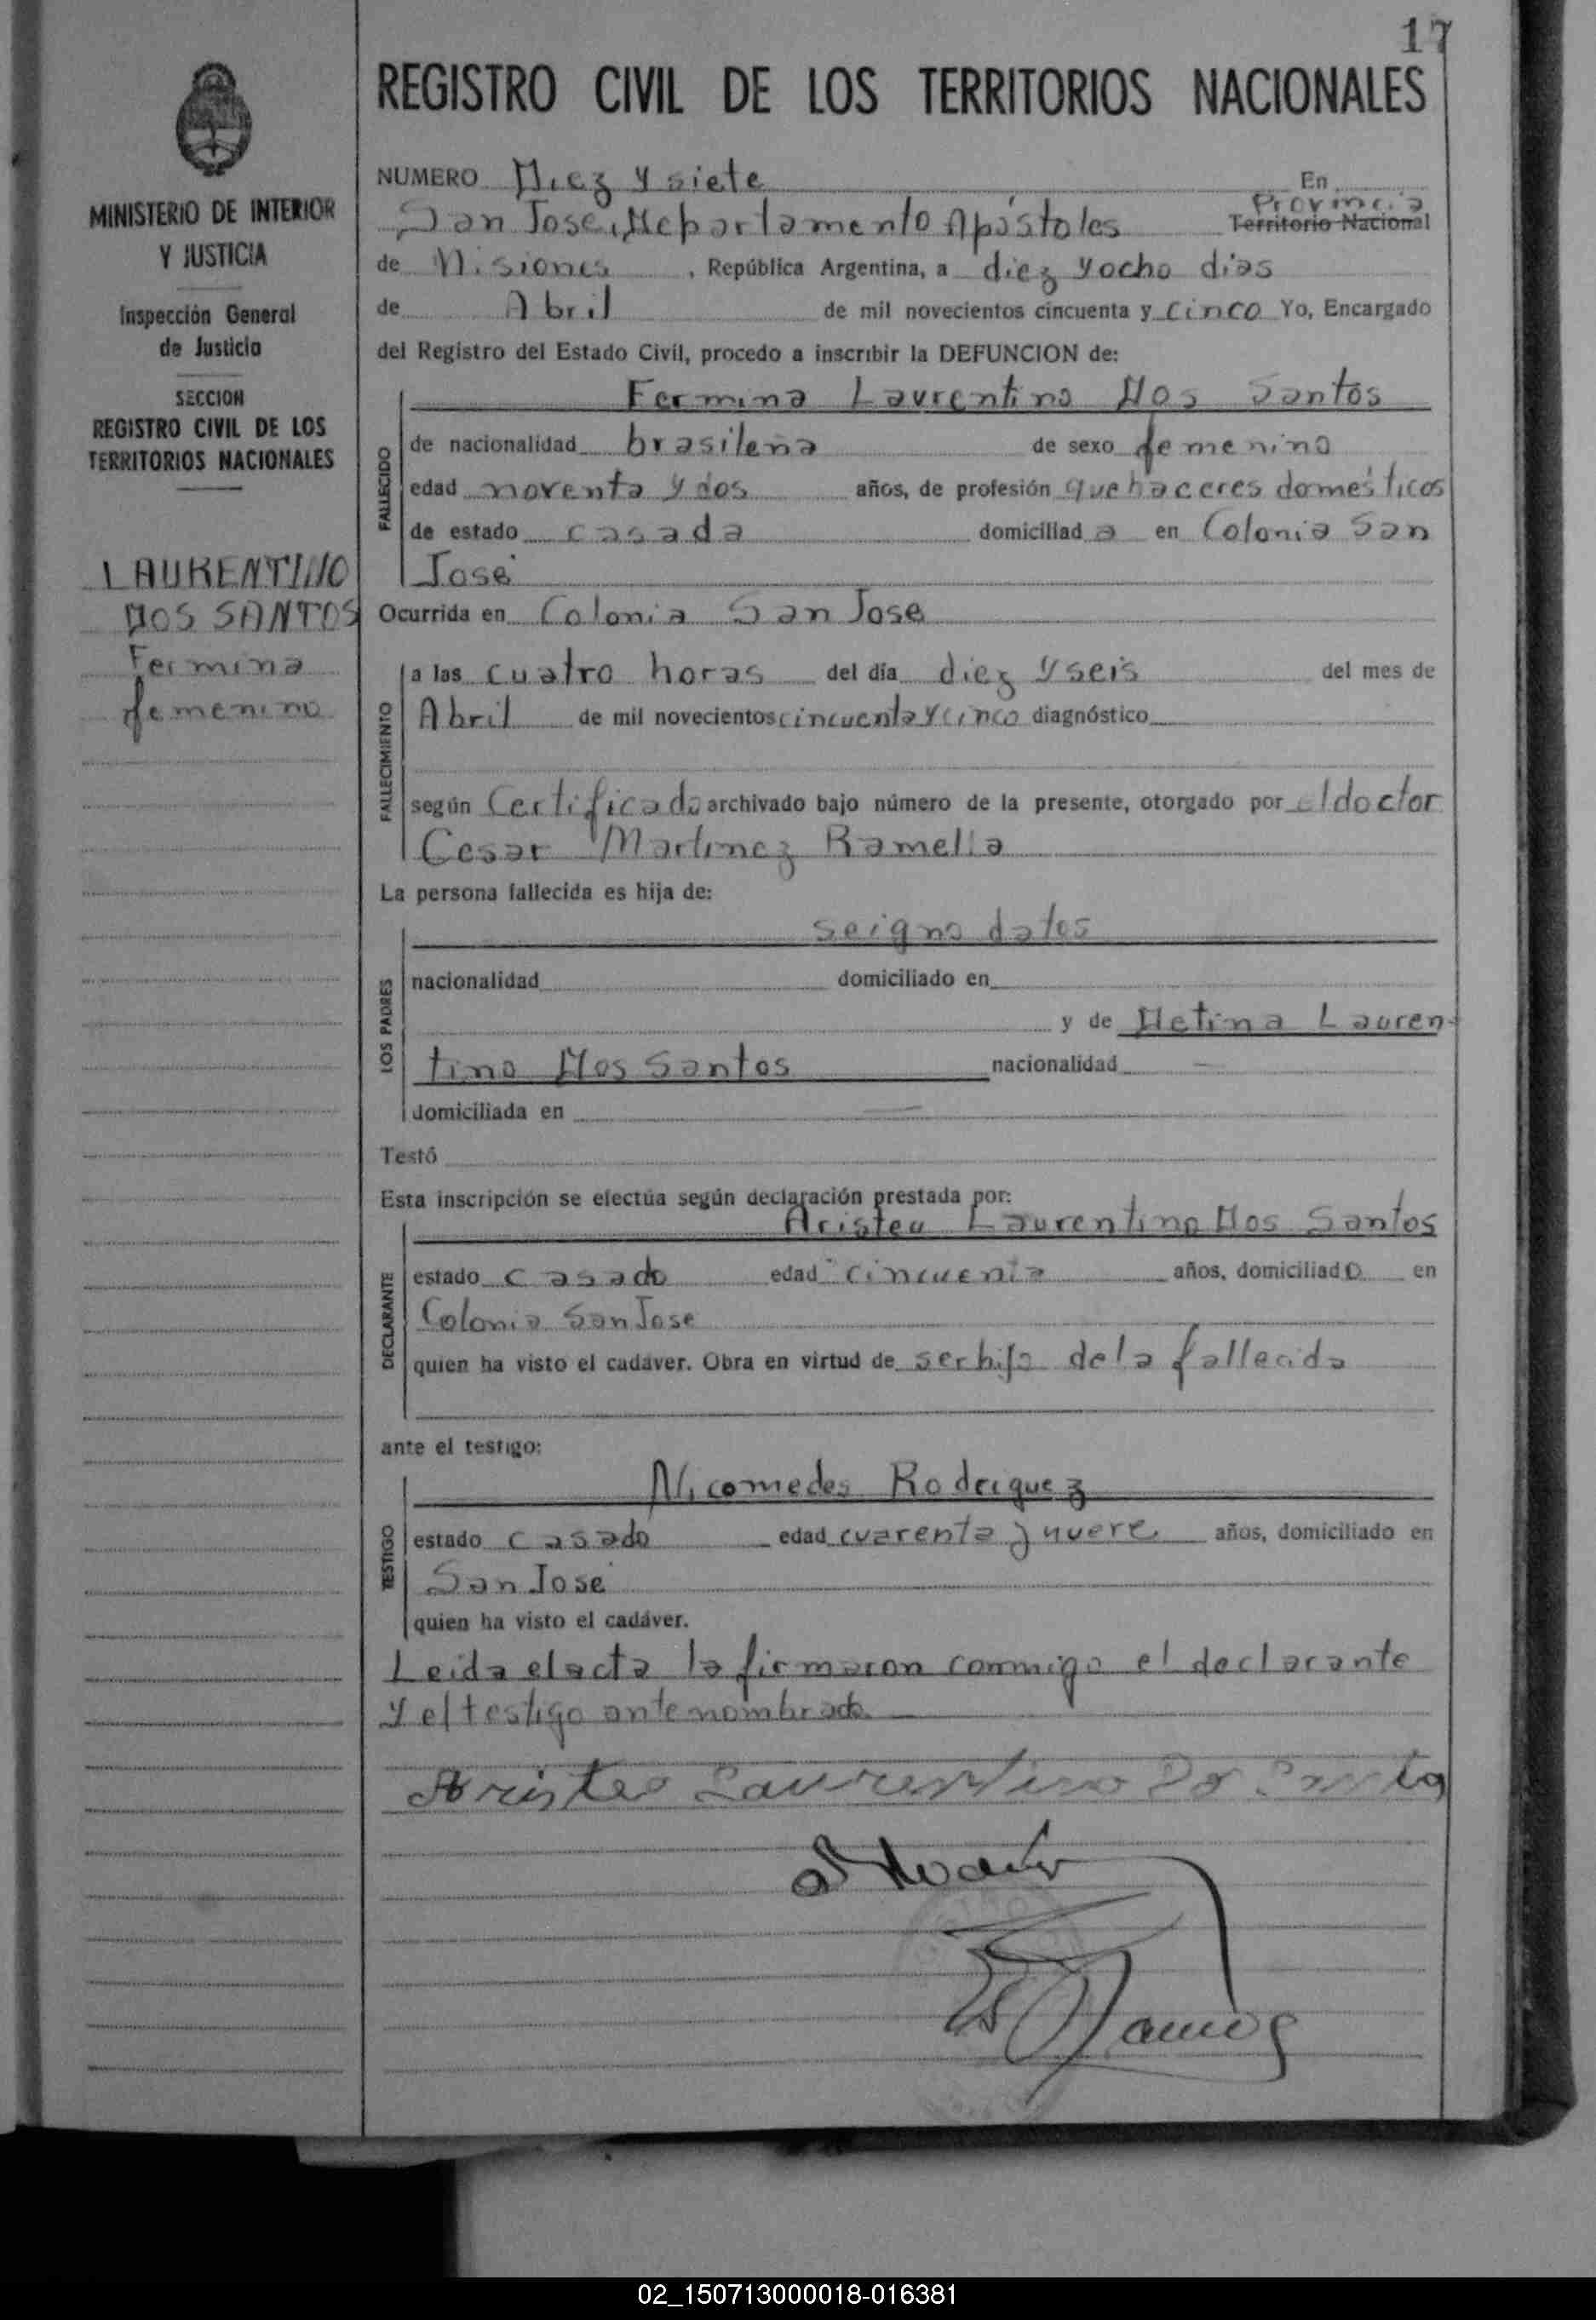 17
REGISTRO CIVIL DE LOS TERRITORIOS NACIONALES
MINISTERIO DE INTERIOR
Y JUSTICIA
Inspección General
de Justicia
SECCION
REGISTRO CIVIL DE LOS
TERRITORIOS NACIONALES
LAURENTINO
DOS SANTOS
Fermina
femenino
NUMERO Diez y siete En
San Jose, Departamento Apóstoles Provincia Territorio Nacional
de Misiones, República Argentina, a diez y ocho dias
de Abril de mil novecientos cincuenta y cinco Yo, Encargado
del Registro del Estado Civil, procedo a inscribir la DEFUNCION de:
FALLECIDO
Fermina Laurentino Dos Santos
de nacionalidad brasileña de sexo femenino
edad noventa y dos años, de profesión quehaceres domésticos
de estado casada domiciliad a en Colonia San
José
Ocurrida en Colonia San Jose
FALLECIMIENTO
a las cuatro horas del día diez y seis del mes de
Abril de mil novecientos cincuenta y cinco diagnóstico
según Certificado archivado bajo número de la presente, otorgado por el doctor
Cesar Martinez Ramella
La persona fallecida es hija de:
LOS PADRES
seigno datos
nacionalidad domiciliado en
y de Detina Lauren-
tino Dos Santos nacionalidad —
domiciliada en —
Testó
Esta inscripción se efectúa según declaración prestada por:
DECLARANTE
Aristeu Laurentino Dos Santos
estado casado edad cincuenta años, domiciliado en
Colonia San Jose
quien ha visto el cadáver. Obra en virtud de ser hijo de la fallecida
ante el testigo:
TESTIGO
Nicomedes Rodriguez
estado casado edad cuarenta y nueve años, domiciliado en
San José
quien ha visto el cadáver.
Leida el acta la firmaron conmigo el declarante
y el testigo antenombrado
Aristeo Laurentino
Ramos
02_150713000018-016381